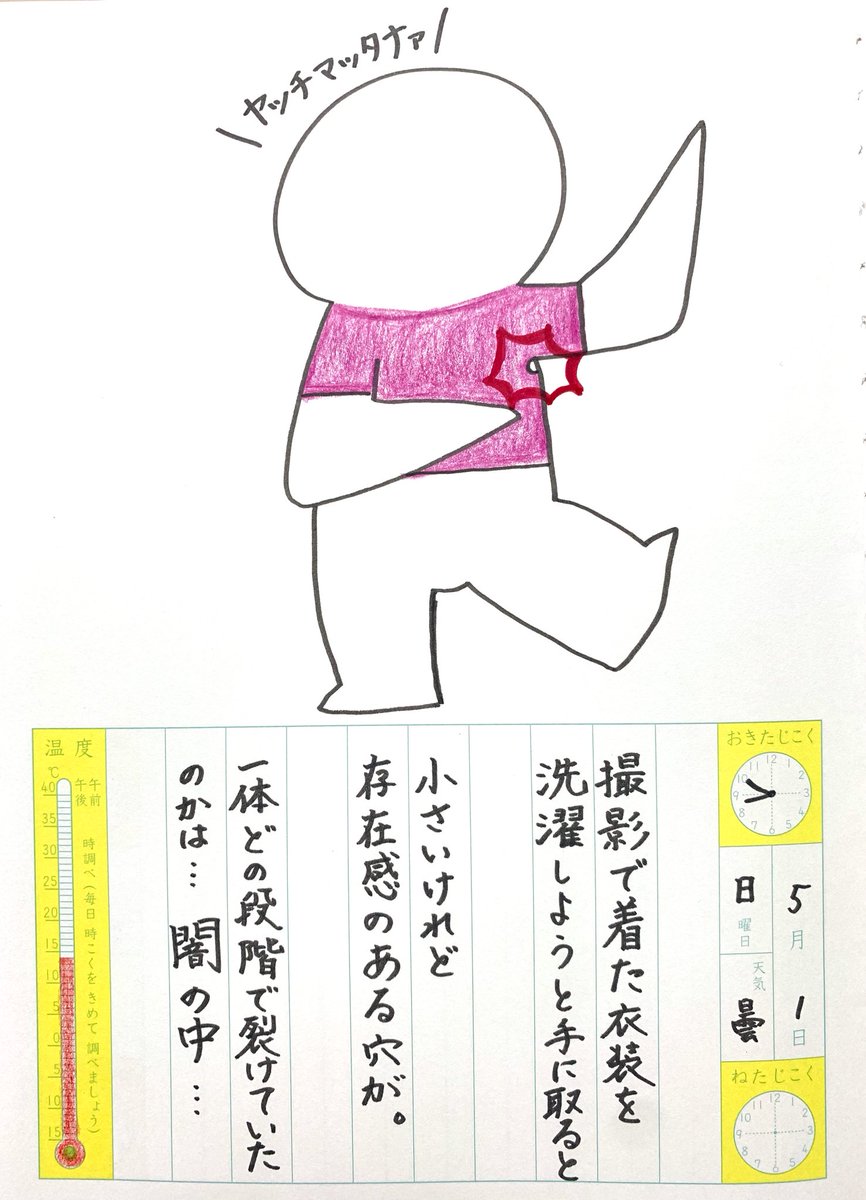 ヤッチマッタナァ
おきたじこく
12
1
2
3
4
5
6
7
8
9
10
11
5月1日
日曜日
天気
曇
ねたじこく
12
1
2
3
4
5
6
7
8
9
10
11
撮影で着た衣装を
洗濯しようと手に取ると
小さいけれど
存在感のある穴が。
一体どの段階で裂けていた
のかは… 闇の中…
温度
℃
午前
午後
時調べ(毎日時こくをきめて調べましょう)
40
35
30
25
20
15
10
5
0
5
10
15